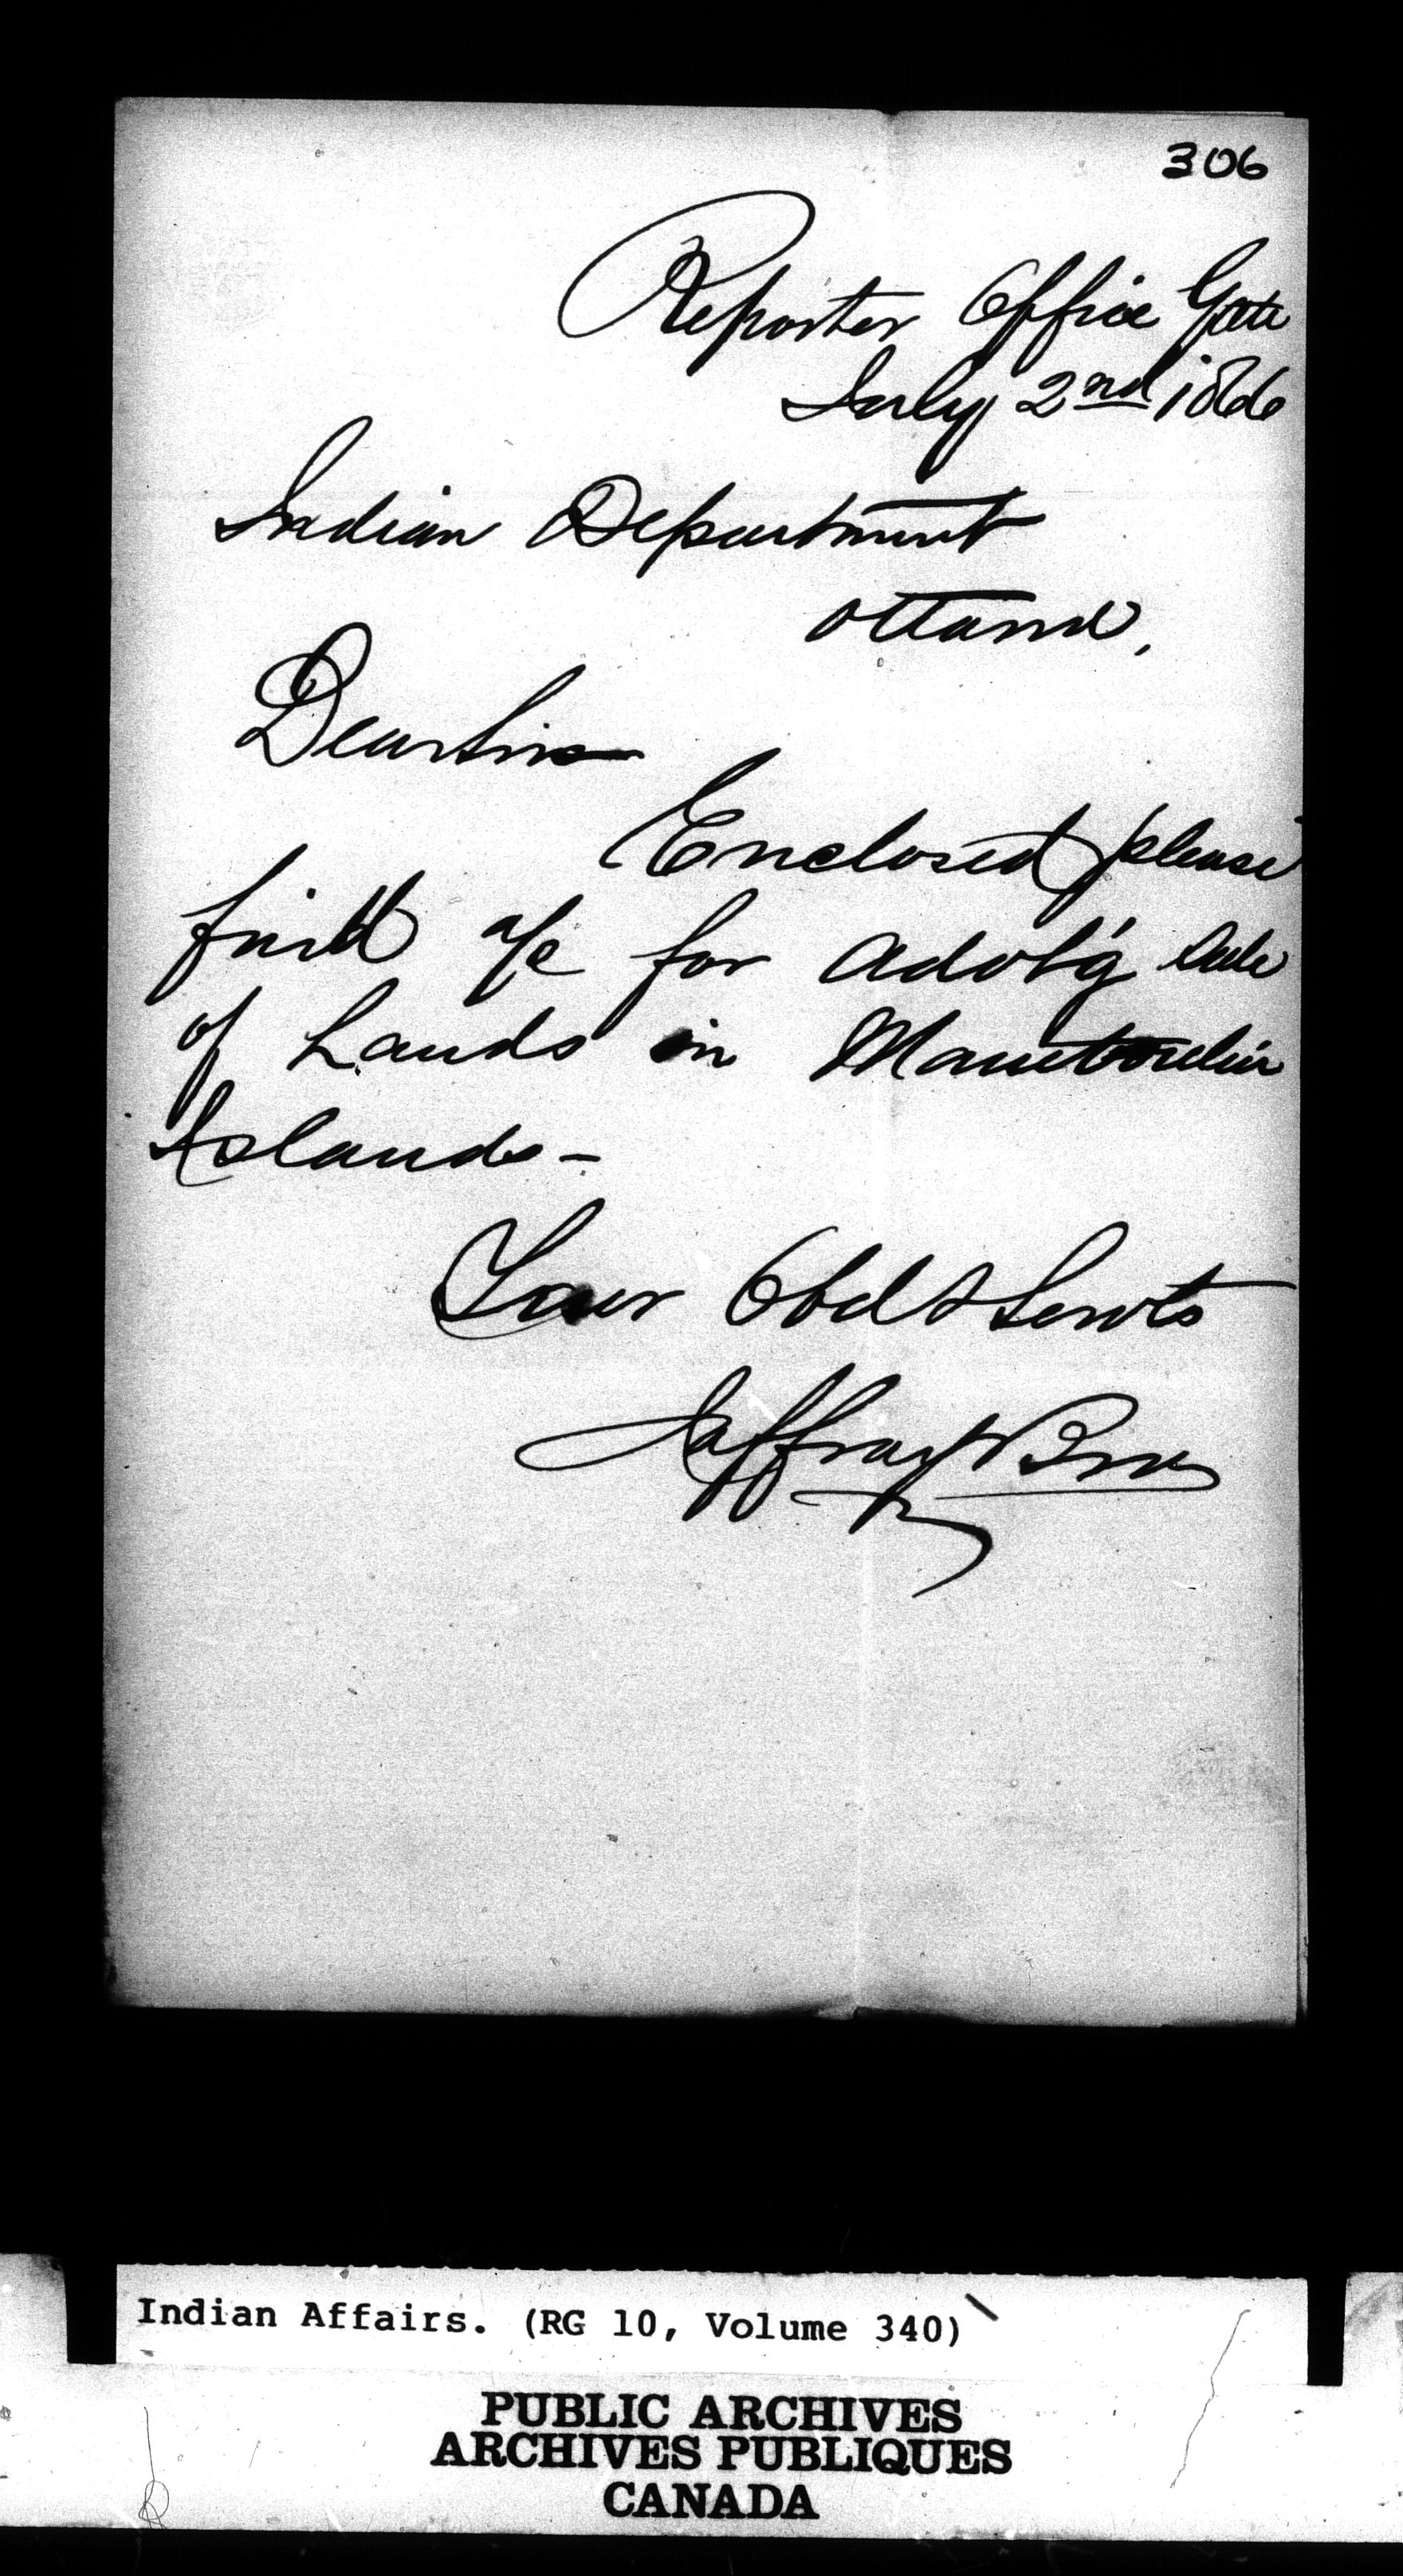 306
Reporter Office Galt
July 2nd 1866
Indian Department
Ottawa,
Dear Sir
Enclosed please
find a/c for advt'g sale
of Lands in Manitoulin
Islands -
Your Obdt Servts
Jaffray Bros
Indian Affairs. (RG 10, Volume 340)
PUBLIC ARCHIVES
ARCHIVES PUBLIQUES
CANADA